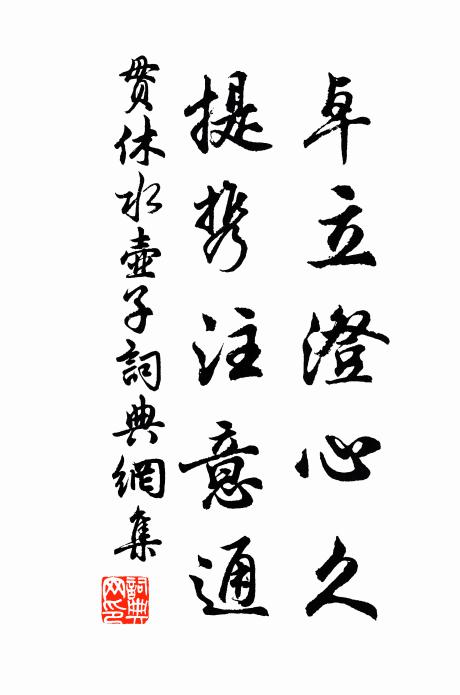 卓立澄心久
提携注意通
贯休水壶子詞典網集
詞典网印